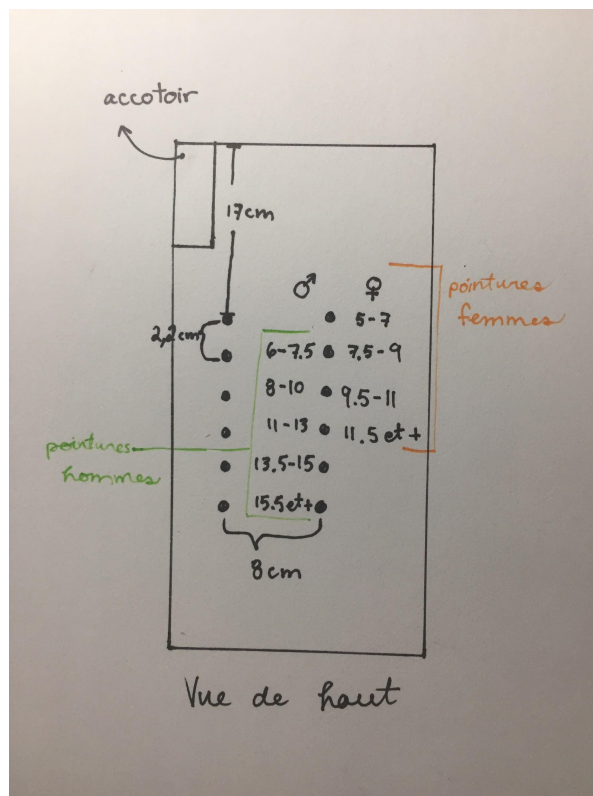 accotoir
17cm
♂ ♀
pointures
femmes
5-7
2,2cm
6-7.5 7.5-9
8-10 9.5-11
11-13 11.5 et +
pointures
hommes
13.5-15
15.5 et +
8cm
Vue de haut